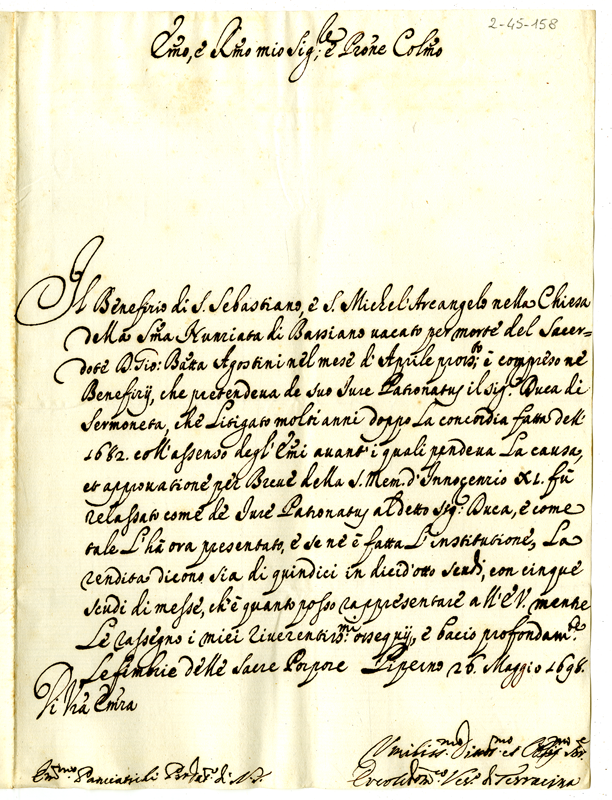 2-45-158
Emo, e Rmo mio Sig:re e Prone Colmo
Il Benefizio di S. Sebastiano, e S. Michel'Arcangelo nella Chiesa
della Sma Nunziata di Bassiano vacato per morte del Sacer=
dote D. Gio: Batta Agostini nel mese d'Aprile pross:to è compreso ne
Benefizij, che pretendeva de suo Jure Patronatus il Sig:r Duca di
Sermoneta, che Litigato molti anni doppo La concordia fatta dell'
1682. coll'assenso degl'Emi avanti quali pendeva La causa,
et approvatione per Breve della S. Mem. d'Innocenzio XI. fù
relassato come de Jure Patronatus al detto Sig:r Duca, e come
tale L'hà ora presentato, e se nè è fatta L'institutione, La
rendita dicono sia di quindici in dicid'otto scudi, con cinque
scudi di messe, ch'è quanto posso rappresentare all'E.V. mentre
Le rassegno i miei riverentiss:mi ossequij, e bacio profondam:te
Le fimbrie delle Sacre Porpore Piperno 26. Maggio 1698.
Di Vra Emza
Umiliss:mo Divot:mo et Obblig:mo Ser:e
Em:mo Panciatichi Prodat:o di N.S. Vesc:o di Terracina